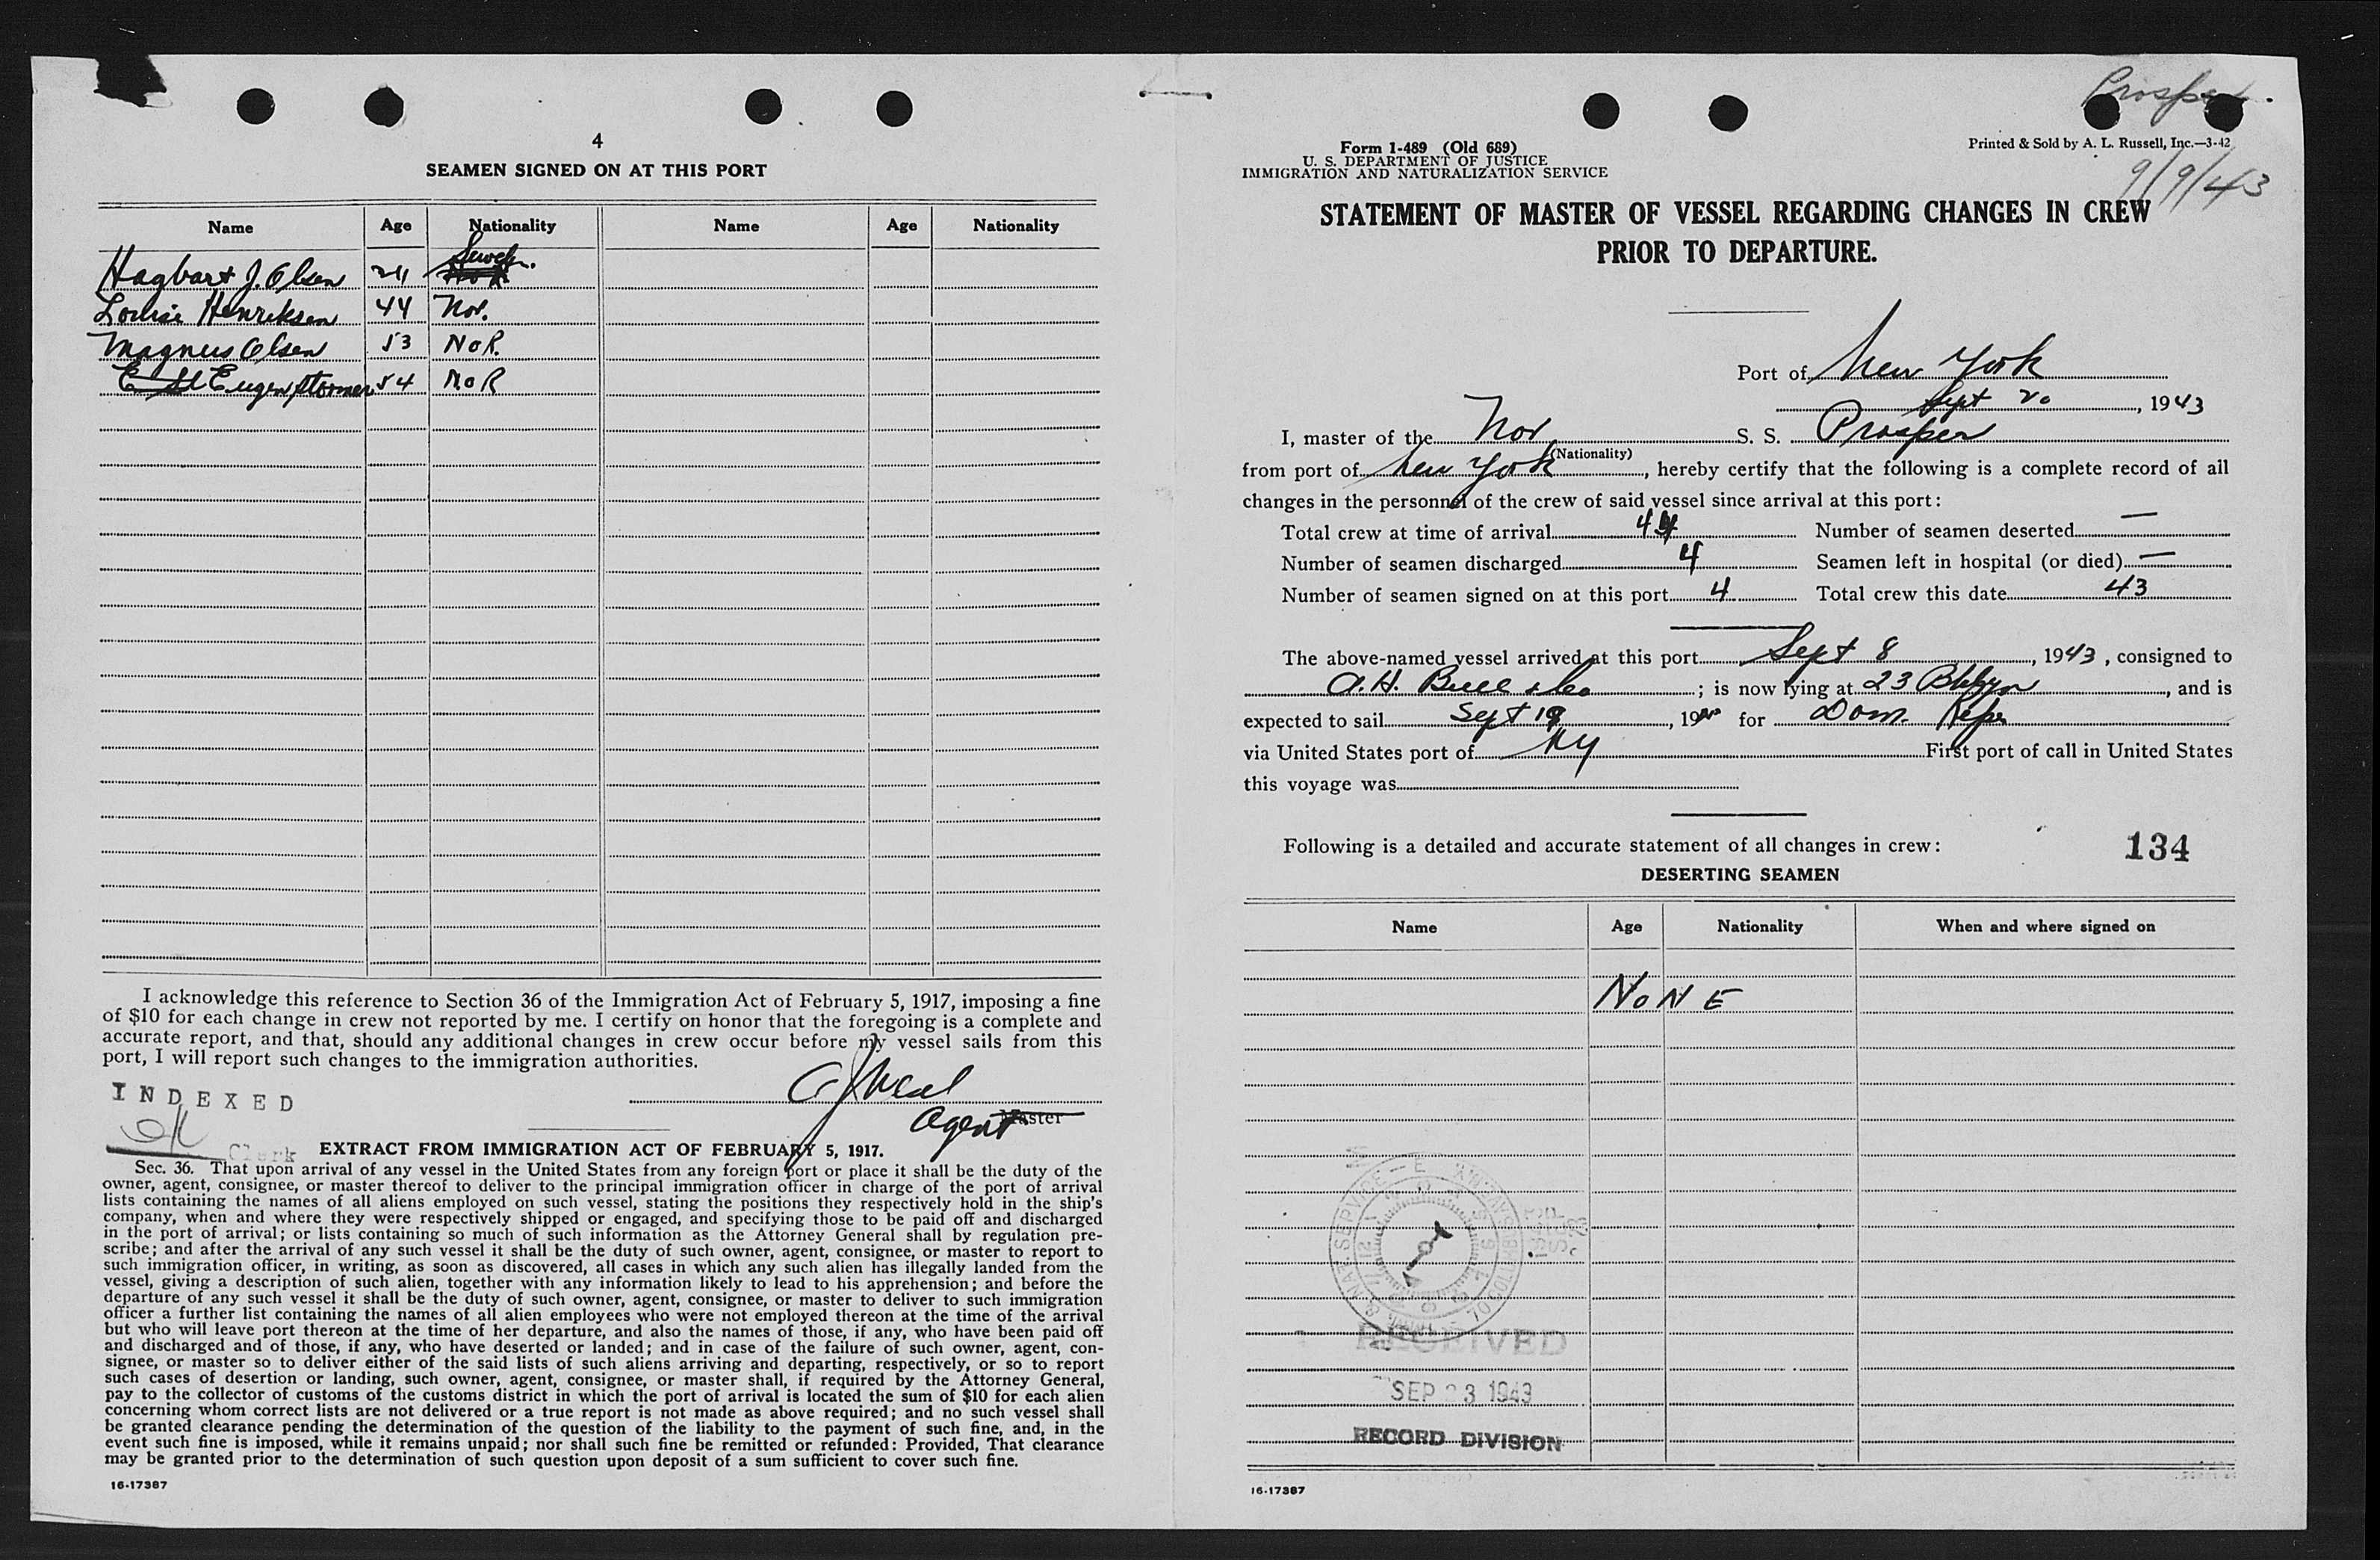 4
SEAMEN SIGNED ON AT THIS PORT
Name Age Nationality Name Age Nationality
Hagbart J. Olsen 24 Swed.
Henriksen 44 Nor.
Magnus Olsen 53 NoR.
Eugen Stormer 54 NoR
I acknowledge this reference to Section 36 of the Immigration Act of February 5, 1917, imposing a fine
of $10 for each change in crew not reported by me. I certify on honor that the foregoing is a complete and
accurate report, and that, should any additional changes in crew occur before my vessel sails from this
port, I will report such changes to the immigration authorities.
INDEXED
Agent Master
Clerk
EXTRACT FROM IMMIGRATION ACT OF FEBRUARY 5, 1917.
Sec. 36. That upon arrival of any vessel in the United States from any foreign port or place it shall be the duty of the
owner, agent, consignee, or master thereof to deliver to the principal immigration officer in charge of the port of arrival
lists containing the names of all aliens employed on such vessel, stating the positions they respectively hold in the ship's
company, when and where they were respectively shipped or engaged, and specifying those to be paid off and discharged
in the port of arrival; or lists containing so much of such information as the Attorney General shall by regulation pre-
scribe; and after the arrival of any such vessel it shall be the duty of such owner, agent, consignee, or master to report to
such immigration officer, in writing, as soon as discovered, all cases in which any such alien has illegally landed from the
vessel, giving a description of such alien, together with any information likely to lead to his apprehension; and before the
departure of any such vessel it shall be the duty of such owner, agent, consignee, or master to deliver to such immigration
officer a further list containing the names of all alien employees who were not employed thereon at the time of the arrival
but who will leave port thereon at the time of her departure, and also the names of those, if any, who have been paid off
and discharged and of those, if any, who have deserted or landed; and in case of the failure of such owner, agent, con-
signee, or master so to deliver either of the said lists of such aliens arriving and departing, respectively, or so to report
such cases of desertion or landing, such owner, agent, consignee, or master shall, if required by the Attorney General,
pay to the collector of customs of the customs district in which the port of arrival is located the sum of $10 for each alien
concerning whom correct lists are not delivered or a true report is not made as above required; and no such vessel shall
be granted clearance pending the determination of the question of the liability to the payment of such fine, and, in the
event such fine is imposed, while it remains unpaid; nor shall such fine be remitted or refunded: Provided, That clearance
may be granted prior to the determination of such question upon deposit of a sum sufficient to cover such fine.
16-17387
Prosper
Form 1-489 (Old 689)
U. S. DEPARTMENT OF JUSTICE
IMMIGRATION AND NATURALIZATION SERVICE
Printed & Sold by A. L. Russell, Inc.—3-42
9/9/43
STATEMENT OF MASTER OF VESSEL REGARDING CHANGES IN CREW
PRIOR TO DEPARTURE.
Port of New York
Sept 20, 1943
I, master of the Nor S. S. Prosper
(Nationality)
from port of New York, hereby certify that the following is a complete record of all
changes in the personnel of the crew of said vessel since arrival at this port:
Total crew at time of arrival 44 Number of seamen deserted —
Number of seamen discharged 4 Seamen left in hospital (or died) —
Number of seamen signed on at this port 4 Total crew this date 43
The above-named vessel arrived at this port Sept 8, 1943, consigned to
A. H. Bull & Co; is now lying at 23 Bklyn, and is
expected to sail Sept 19, 19 for Dom. Repr
via United States port of NY First port of call in United States
this voyage was
Following is a detailed and accurate statement of all changes in crew:
134
DESERTING SEAMEN
Name Age Nationality When and where signed on
NoNE
RECEIVED
SEP 23 1943
RECORD DIVISION
16-17387